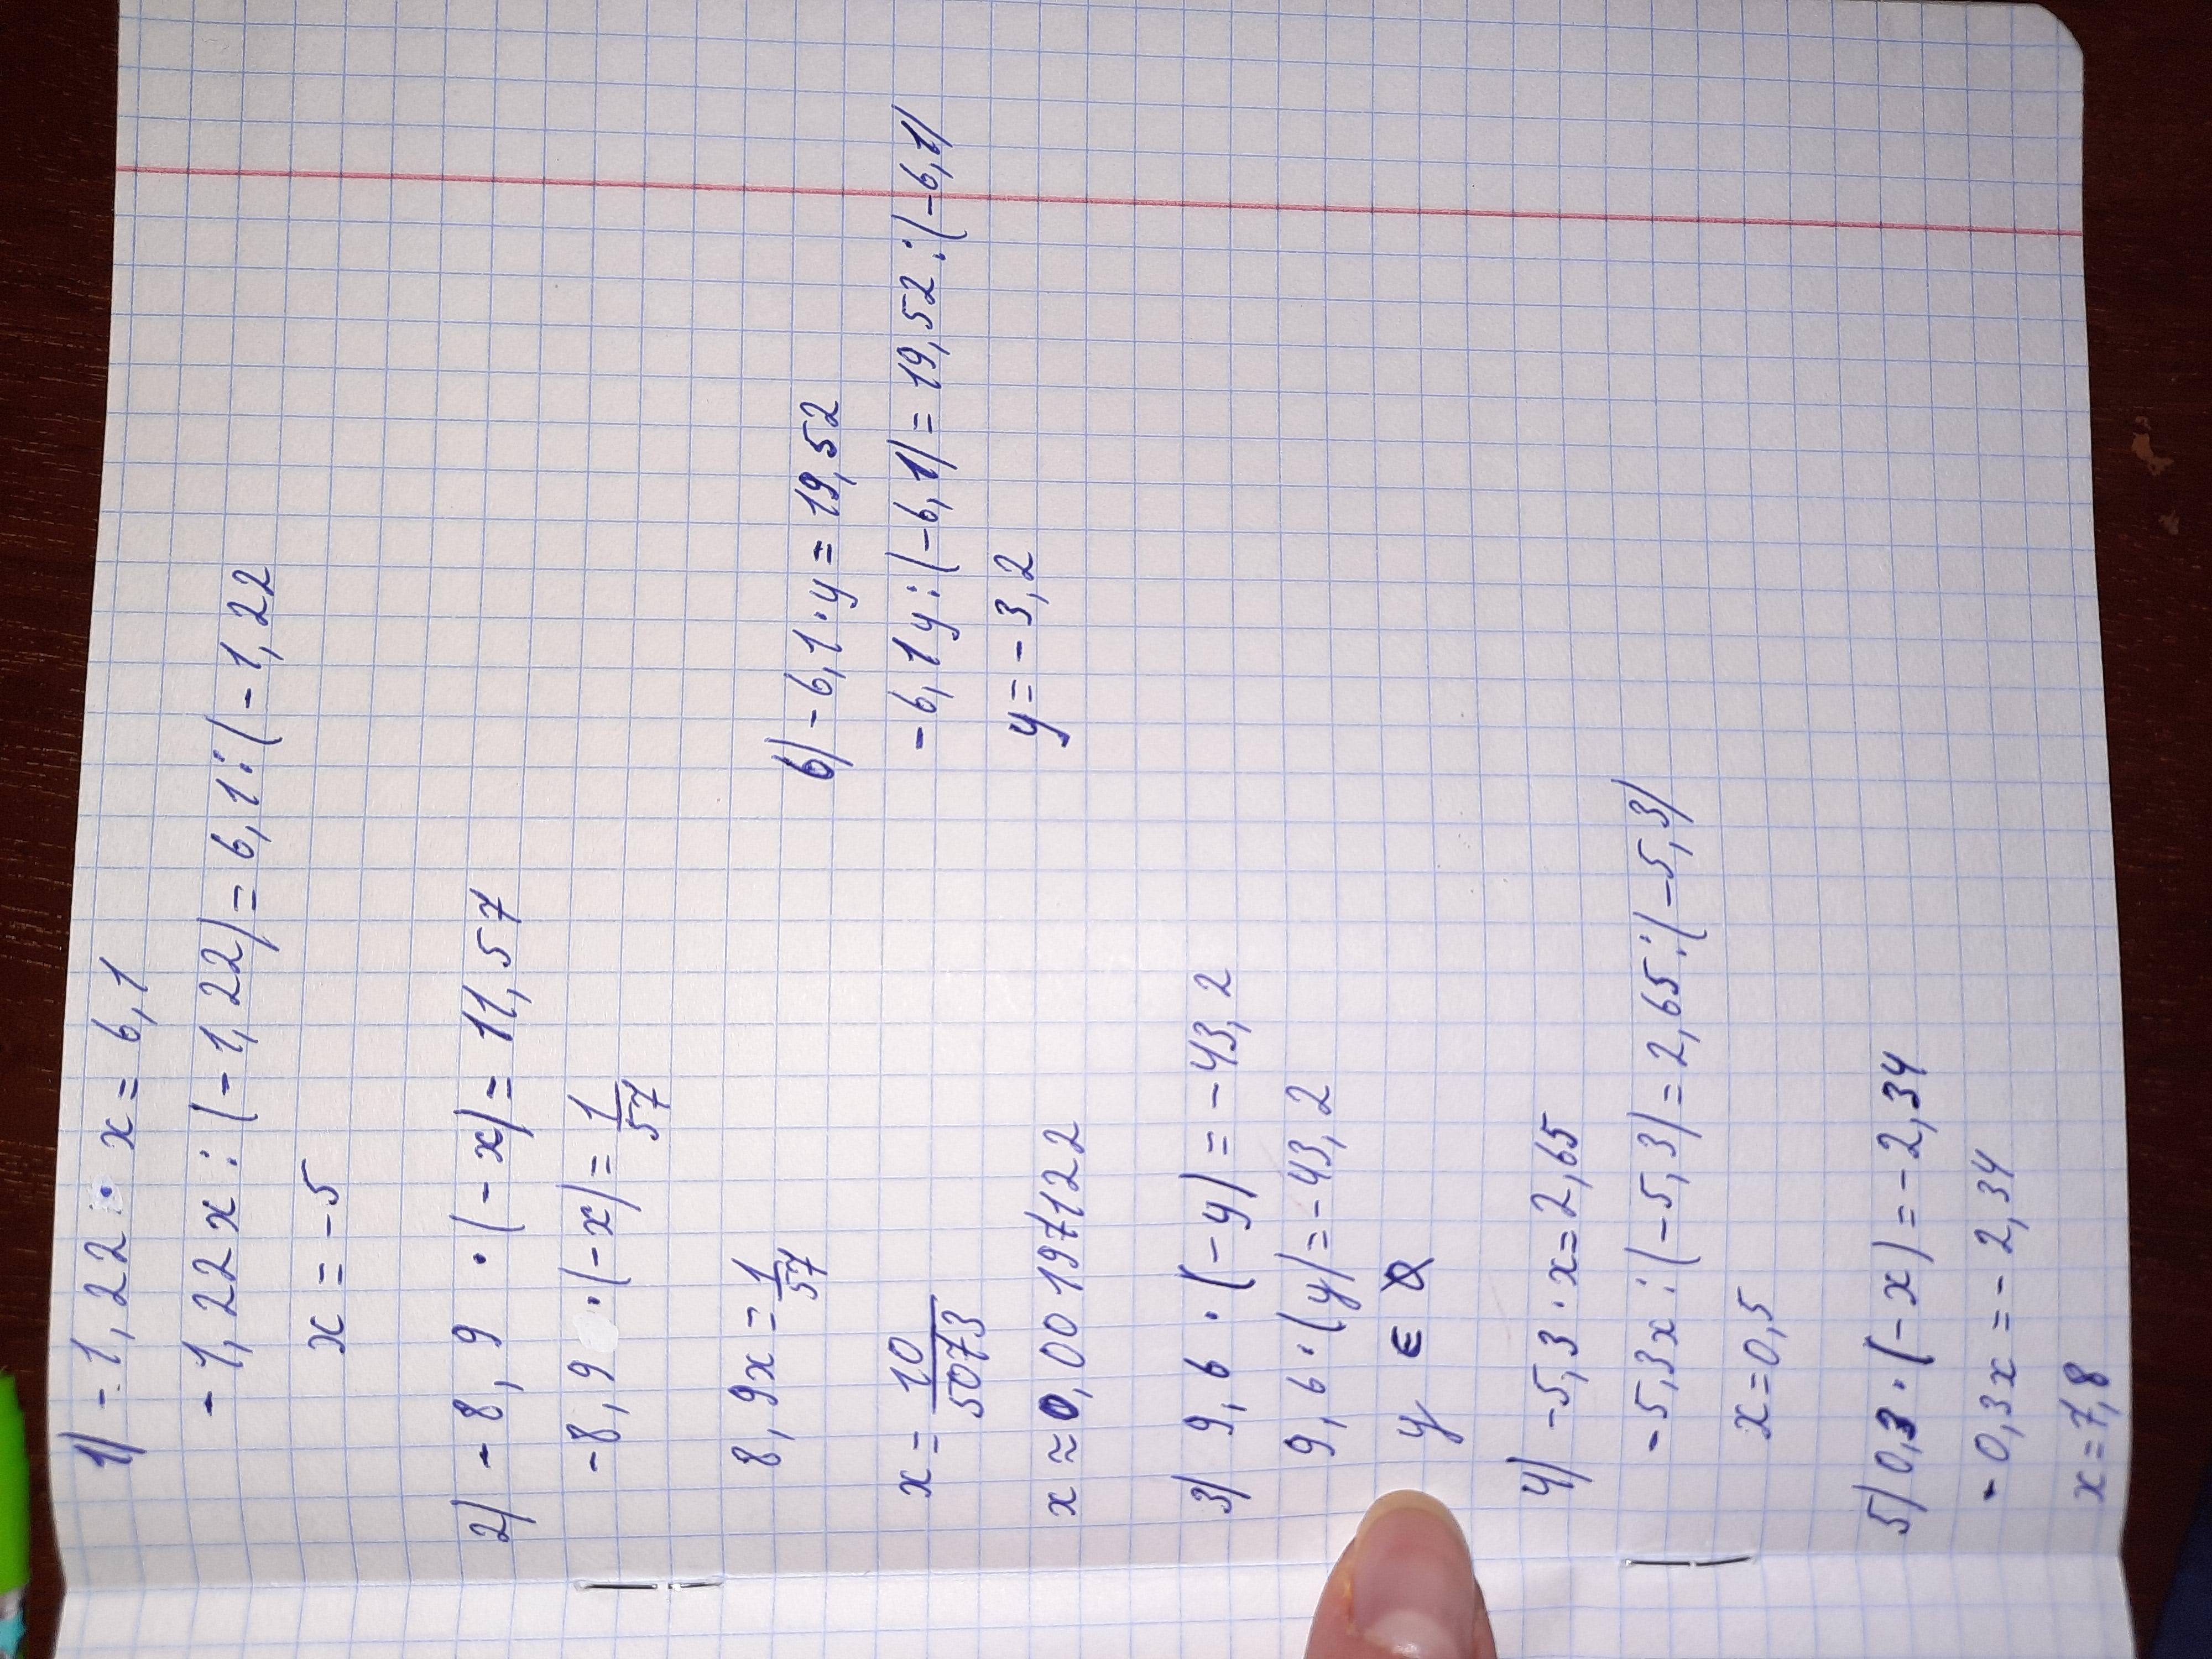 1) -1,22 · x = 6,1
-1,22x : (-1,22) = 6,1 : (-1,22
x = -5
2) -8,9 · (-x) = 11,57
-8,9 · (-x) = 1/57
8,9x = 1/57
x = 10/5073
x ≈ 0,00197122
3) 9,6 · (-y) = -43,2
9,6 · (y) = -43,2
y ∈ Ø
4) -5,3 · x = 2,65
-5,3x : (-5,3) = 2,65 : (-5,3)
x = 0,5
5) 0,3 · (-x) = -2,34
-0,3x = -2,34
x = 7,8
6) -6,1 · y = 19,52
-6,1y : (-6,1) = 19,52 : (-6,1)
y = -3,2